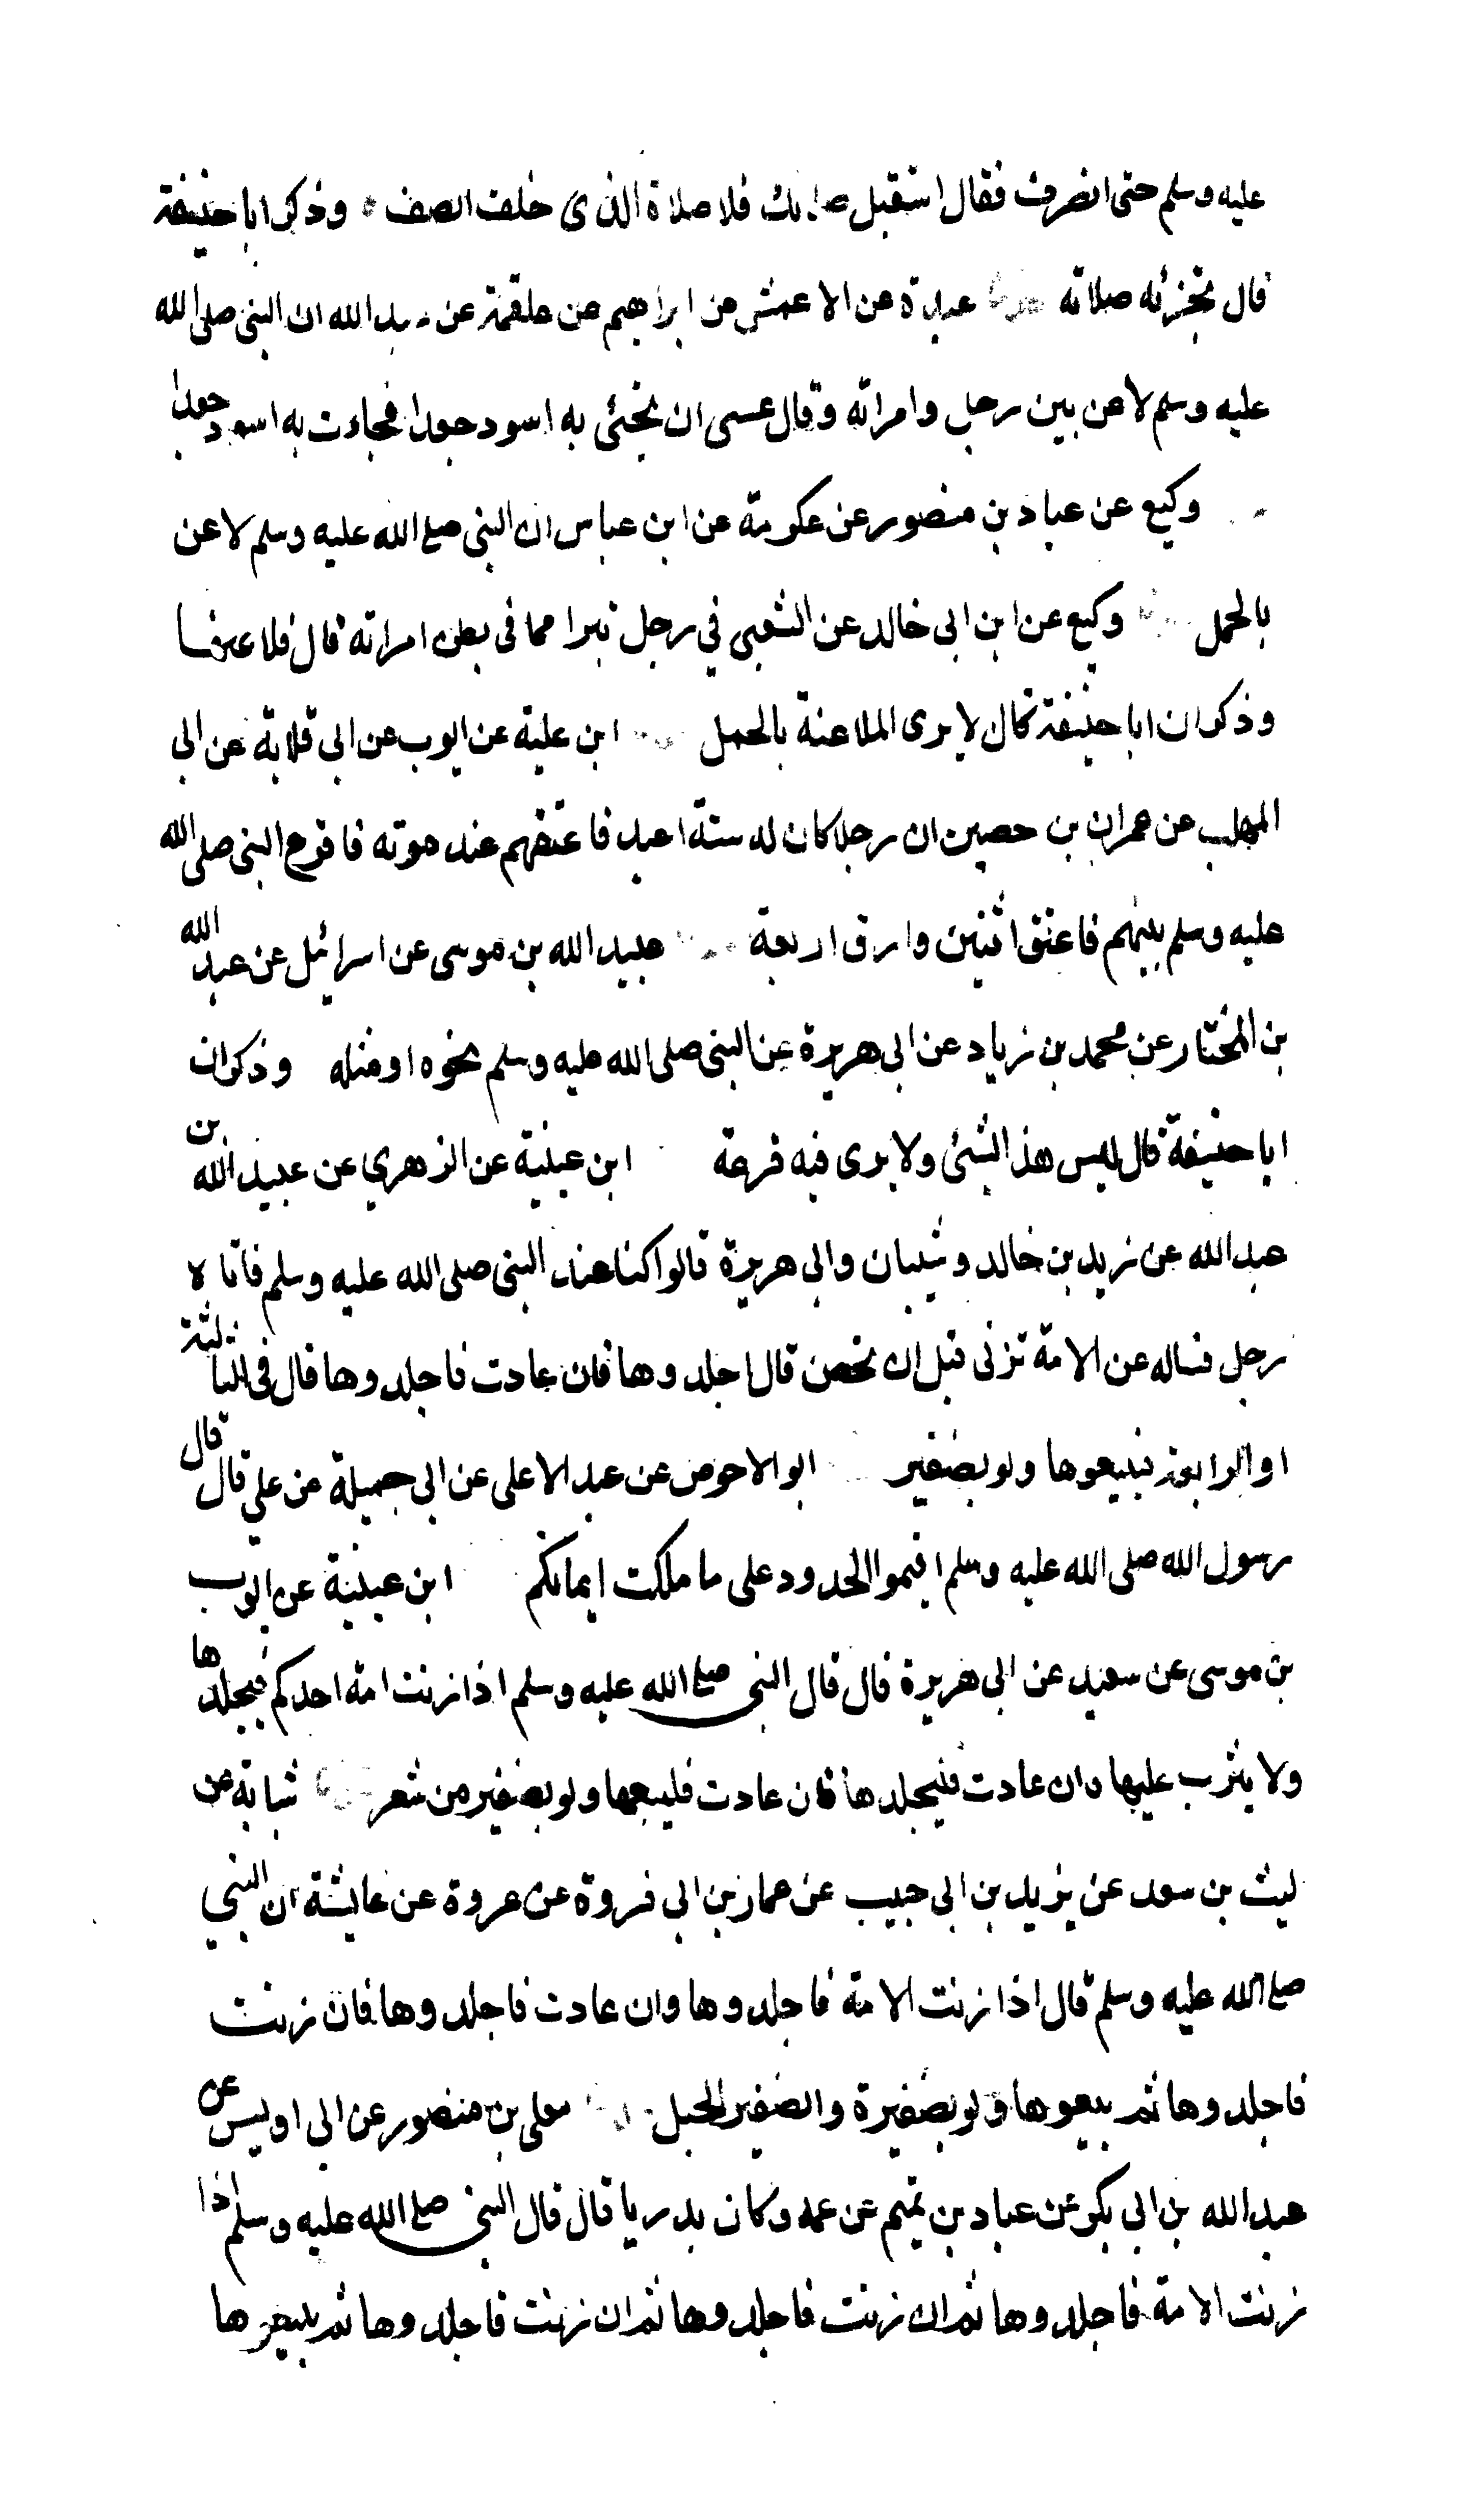 عليه وسلم حتى انصرف فقال استقبل صلاتك فلا صلاة الذى خلف الصف وذكر ابا حنيفة
قال تجزئه صلاته عبدة عن الاعمش عن ابراهيم عن علقمة عن عبد الله ان النبى صلى الله
عليه وسلم لاعن بين رجل وامراته وقال عسى ان تجئى به اسود جعدا فجاءت به اسود جعدا
وكيع عن عباد بن منصور عن عكرمة عن ابن عباس ان النبى صلع الله عليه وسلم لاعن
بالحمل وكيع عن ابن ابى خالد عن الشعبى في رجل تبرا مما فى بطن امراته قال فلاعنها
وذكر ان ابا حنيفة كان لا يرى الملاعنة بالحمل ابن علية عن ايوب عن ابى قلابة عن ابى
المهلب عن عمران بن حصين ان رجلا كان له ستة اعبد فاعتقهم عند موته فاقرع النبى صلى الله
عليه وسلم بينهم فاعتق اثنين وارق اربعة عبيد الله بن موسى عن اسرائيل عن عبد الله
بن المختار عن محمد بن زياد عن ابى هريرة عن النبى صلى الله عليه وسلم نحوه او مثله وذكر ان
ابا حنيفة قال ليس هذا الشئى ولا يرى فيه قرعة ابن عيينة عن الزهري عن عبيد الله بن
عبد الله عن زيد بن خالد وشبان وابى هريرة قالوا كنا عند النبى صلى الله عليه وسلم فاتاه
رجل فساله عن الامة تزنى قبل ان تحصن قال اجلدوها فان عادت فاجلدوها قال فى الثالثة
او الرابعة فبيعوها ولو بضفير ابو الاحوص عن عبد الاعلى عن ابى جميلة عن علي قال قال
رسول الله صلى الله عليه وسلم اقيموا الحدود على ما ملكت ايمانكم ابن عيينة عن ايوب
بن موسى عن سعيد عن ابى هريرة قال قال النبى صلع الله عليه وسلم اذا زنت امة احدكم فيجلدها
ولا يثرب عليها وان عادت فليجلدها فان عادت فليبعها ولو بضفير من شعر شبابة عن
ليث بن سعد عن يزيد بن ابى حبيب عن عمار بن ابى فروة عن عروة عن عايشة ان النبي
صلع الله عليه وسلم قال اذا زنت الامة فاجلدوها وان عادت فاجلدوها فان زنت
فاجلدوها ثم بيعوها ولو بضفيرة والضفير الحبل معلى بن منصور عن ابى اويس عن
عبد الله بن ابى بكر عن عباد بن تميم عن عمه وكان بدريا قال قال النبى صلع الله عليه وسلم اذا
زنت الامة فاجلدوها ثم ان زنت فاجلدوها ثم ان زنت فاجلدوها ثم بيعوها